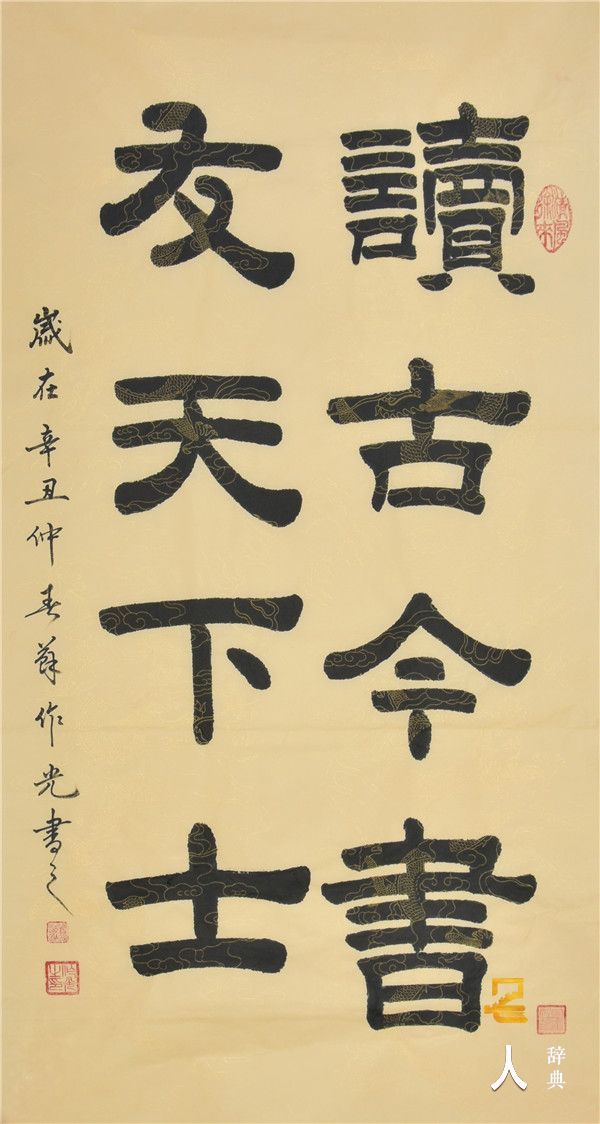 讀古今書
友天下士
歲在辛丑仲春蘇作光書之
人
辭典